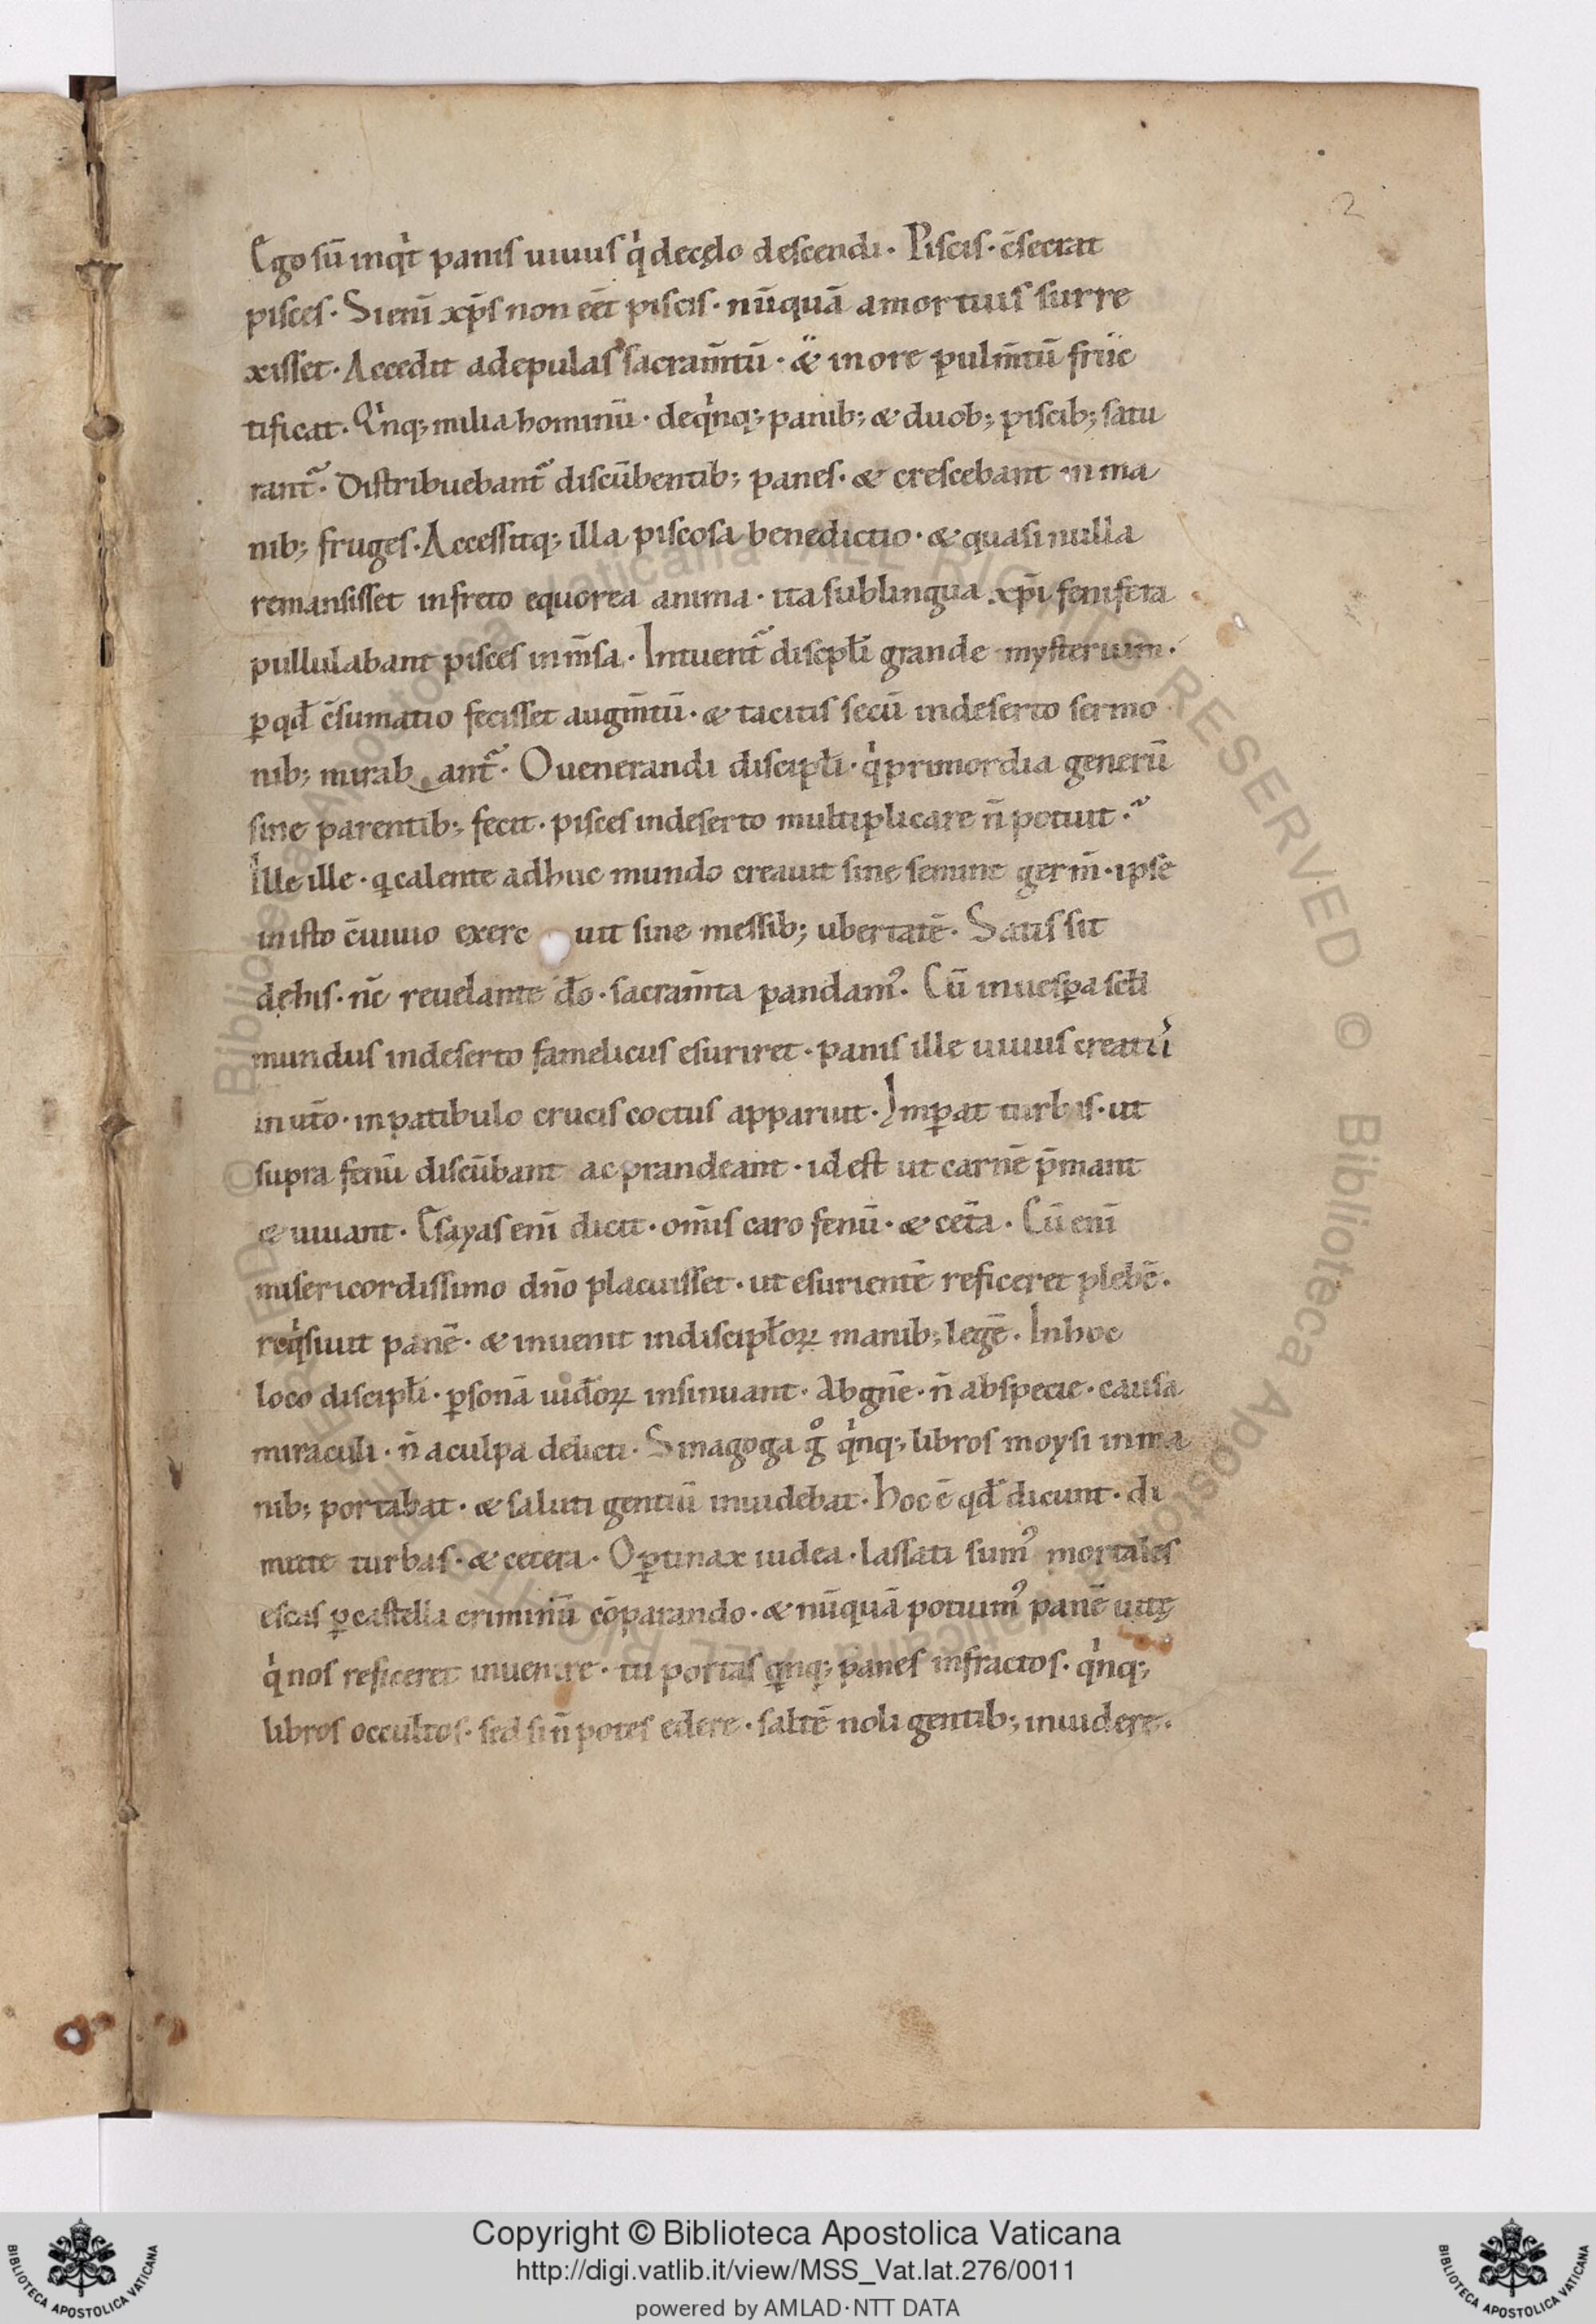 2
Ego sū inqͥt panis uiuus qͥ decęlo descendi · Piscis · c̄secrat
pisces · Si eni̅ xp̅s non ēēt piscis · nūquā amortuis surre
xisset · Accedit ad epulas sacram̅tū · & in ore pulm̅tū fruc
tificat · Qͥnq; milia hominū · deqͥnq; panib; & duob; piscib; satu
rant᷑ · Distribuebant᷑ discūbentib; panes · & crescebant in ma
nib; fruges · Accessitq; illa piscosa benedictio · & quasi nulla
remansisset infreto equorea anima · ita sublingua xp̅i fenifera
pullulabant pisces inm̅sa · Intuent᷑ discpl̅i grande mysterium ·
ꝑ qd̅ c̄sumatio fecisset augm̅tū · & tacitis secū indeserto sermo
nib; mirab ant᷑ · Ouenerandi discipl̅i · qͥ primordia generū
sine parentib; fecit · pisces indeserto multiplicare n̄ potuit ·
Ille ille · q calente adhuc mundo creauit sine semine germ̅ · ipse
in isto c̄uiuio exerc uit sine messib; ubertatē · Satis sit
dęhis · nc̄ reuelante do̅ · sacram̅ta pandam᷒ · Cū inuesꝑa scl̅i
mundus indeserto famelicus esuriret · panis ille uiuus creatu᷑
in ut̅o · inpatibulo crucis coctus apparuit · Imꝑat turbis · ut
supra fenū discūbant ac prandeant · id est ut carnē p̄mant
& uiuant · Esayas eni̅ dicit · om̅is caro fenū · & cet̅a · Cū eni̅
misericordissimo dn̅o placuisset · ut esurientē reficeret plebē ·
reqͥsiuit panē · & inuenit indiscipl̅oꝝ manib; legē · Inhoc
loco discipl̅i · ꝑsonā iud̅oꝝ insinuant · Abgn̅e · n̄ abspecie · causa
miraculi · n̄ aculpa delicti · Sinagoga gͦ qͥnq; libros moysi inma
nib; portabat · & saluti gentiū inuidebat · hoc ē qd̅ dicunt · di
mitte turbas · & cetera · Oꝑtinax iudea · lassati sum᷒ mortales
escas ꝑ castella criminū cōparando · & nūquā potuim᷒ panē uitę
qͥ nos reficeret inuenire · tu portas qͥnq; panes infractos · qͥnq;
libros occultos · sed si n̄ potes edere · saltē noli gentib; inuidere ·
© Biblioteca Apostolica Vaticana ALL RIGHTS RESERVED © Biblioteca Apostolica Vaticana ALL RIGHTS RESERVED
Copyright © Biblioteca Apostolica Vaticana
http://digi.vatlib.it/view/MSS_Vat.lat.276/0011
powered by AMLAD·NTT DATA
BIBLIOTECA APOSTOLICA VATICANA
BIBLIOTECA APOSTOLICA VATICANA